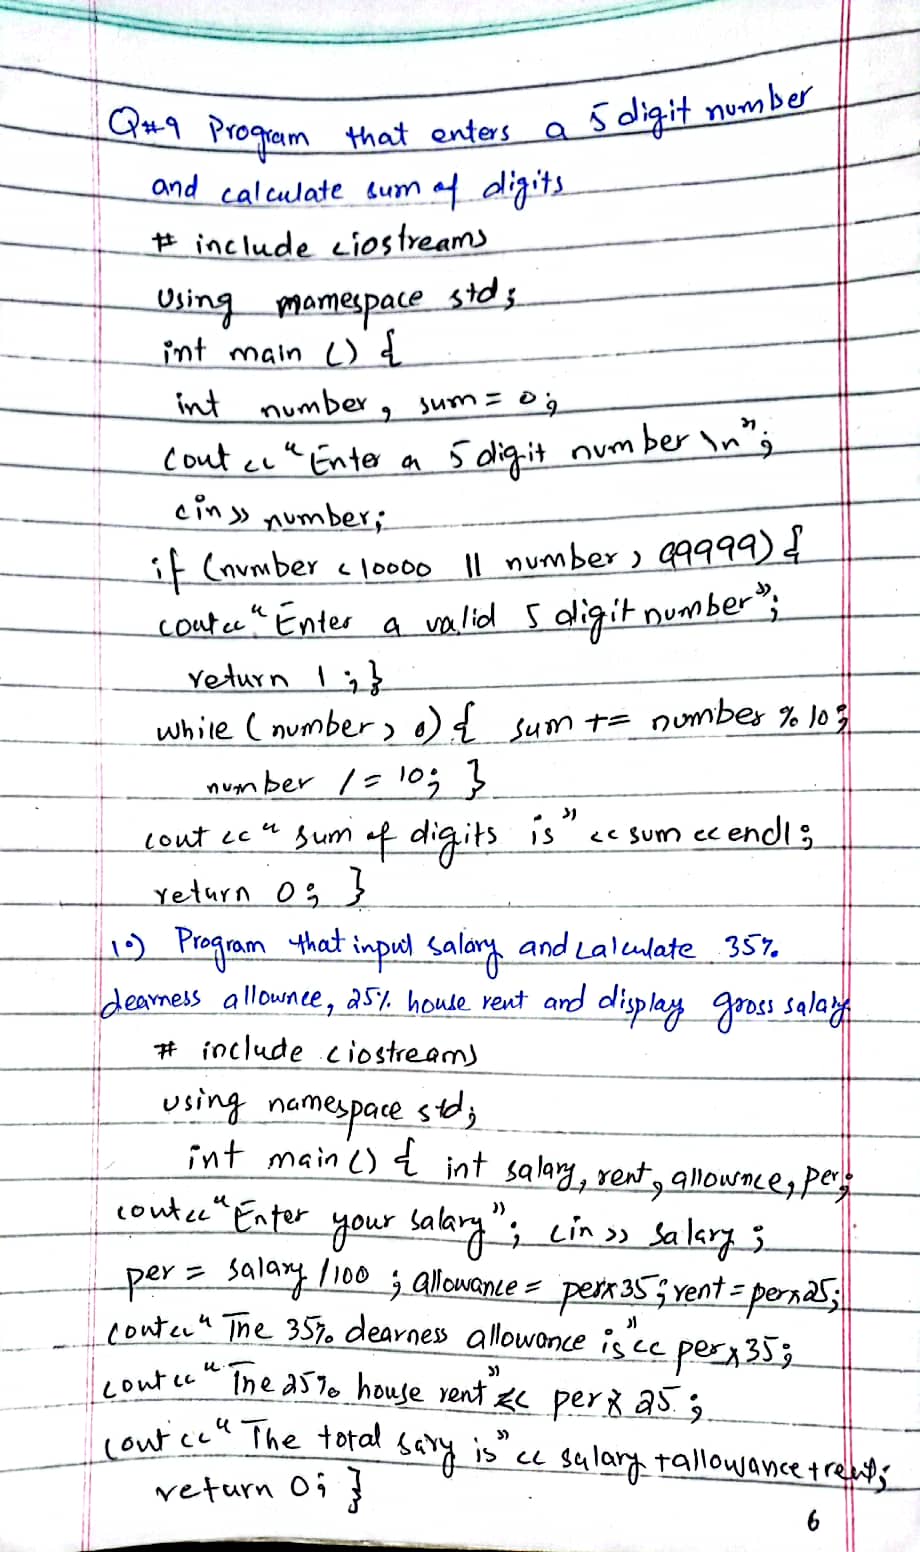 Q#9 Program that enters a 5 digit number
and calculate sum of digits
# include <iostream>
Using mamespace std;
int main () {
int number, sum = 0;
cout << "Enter a 5 digit number \n";
cin >> number;
if (number < 10000 || number > 99999) {
cout << "Enter a valid 5 digit number";
return 1;}
while (number > 0) { sum += number % 10;
number /= 10; }
cout << "sum of digits is" << sum << endl;
return 0; }
10) Program that input salary and calculate 35%
dearness allownce, 25% house rent and display gross salary
# include <iostream>
using namespace std;
int main() { int salary, rent, allownce, per;
cout << "Enter your salary"; cin >> salary;
per = salary /100 ; allowance = per*35; rent = per*25;
cout << "The 35% dearness allowance is" << per*35;
cout << "The 25% house rent" << per * 25;
cout << "The total sary is" << salary + allowance + rent;
return 0; }
6